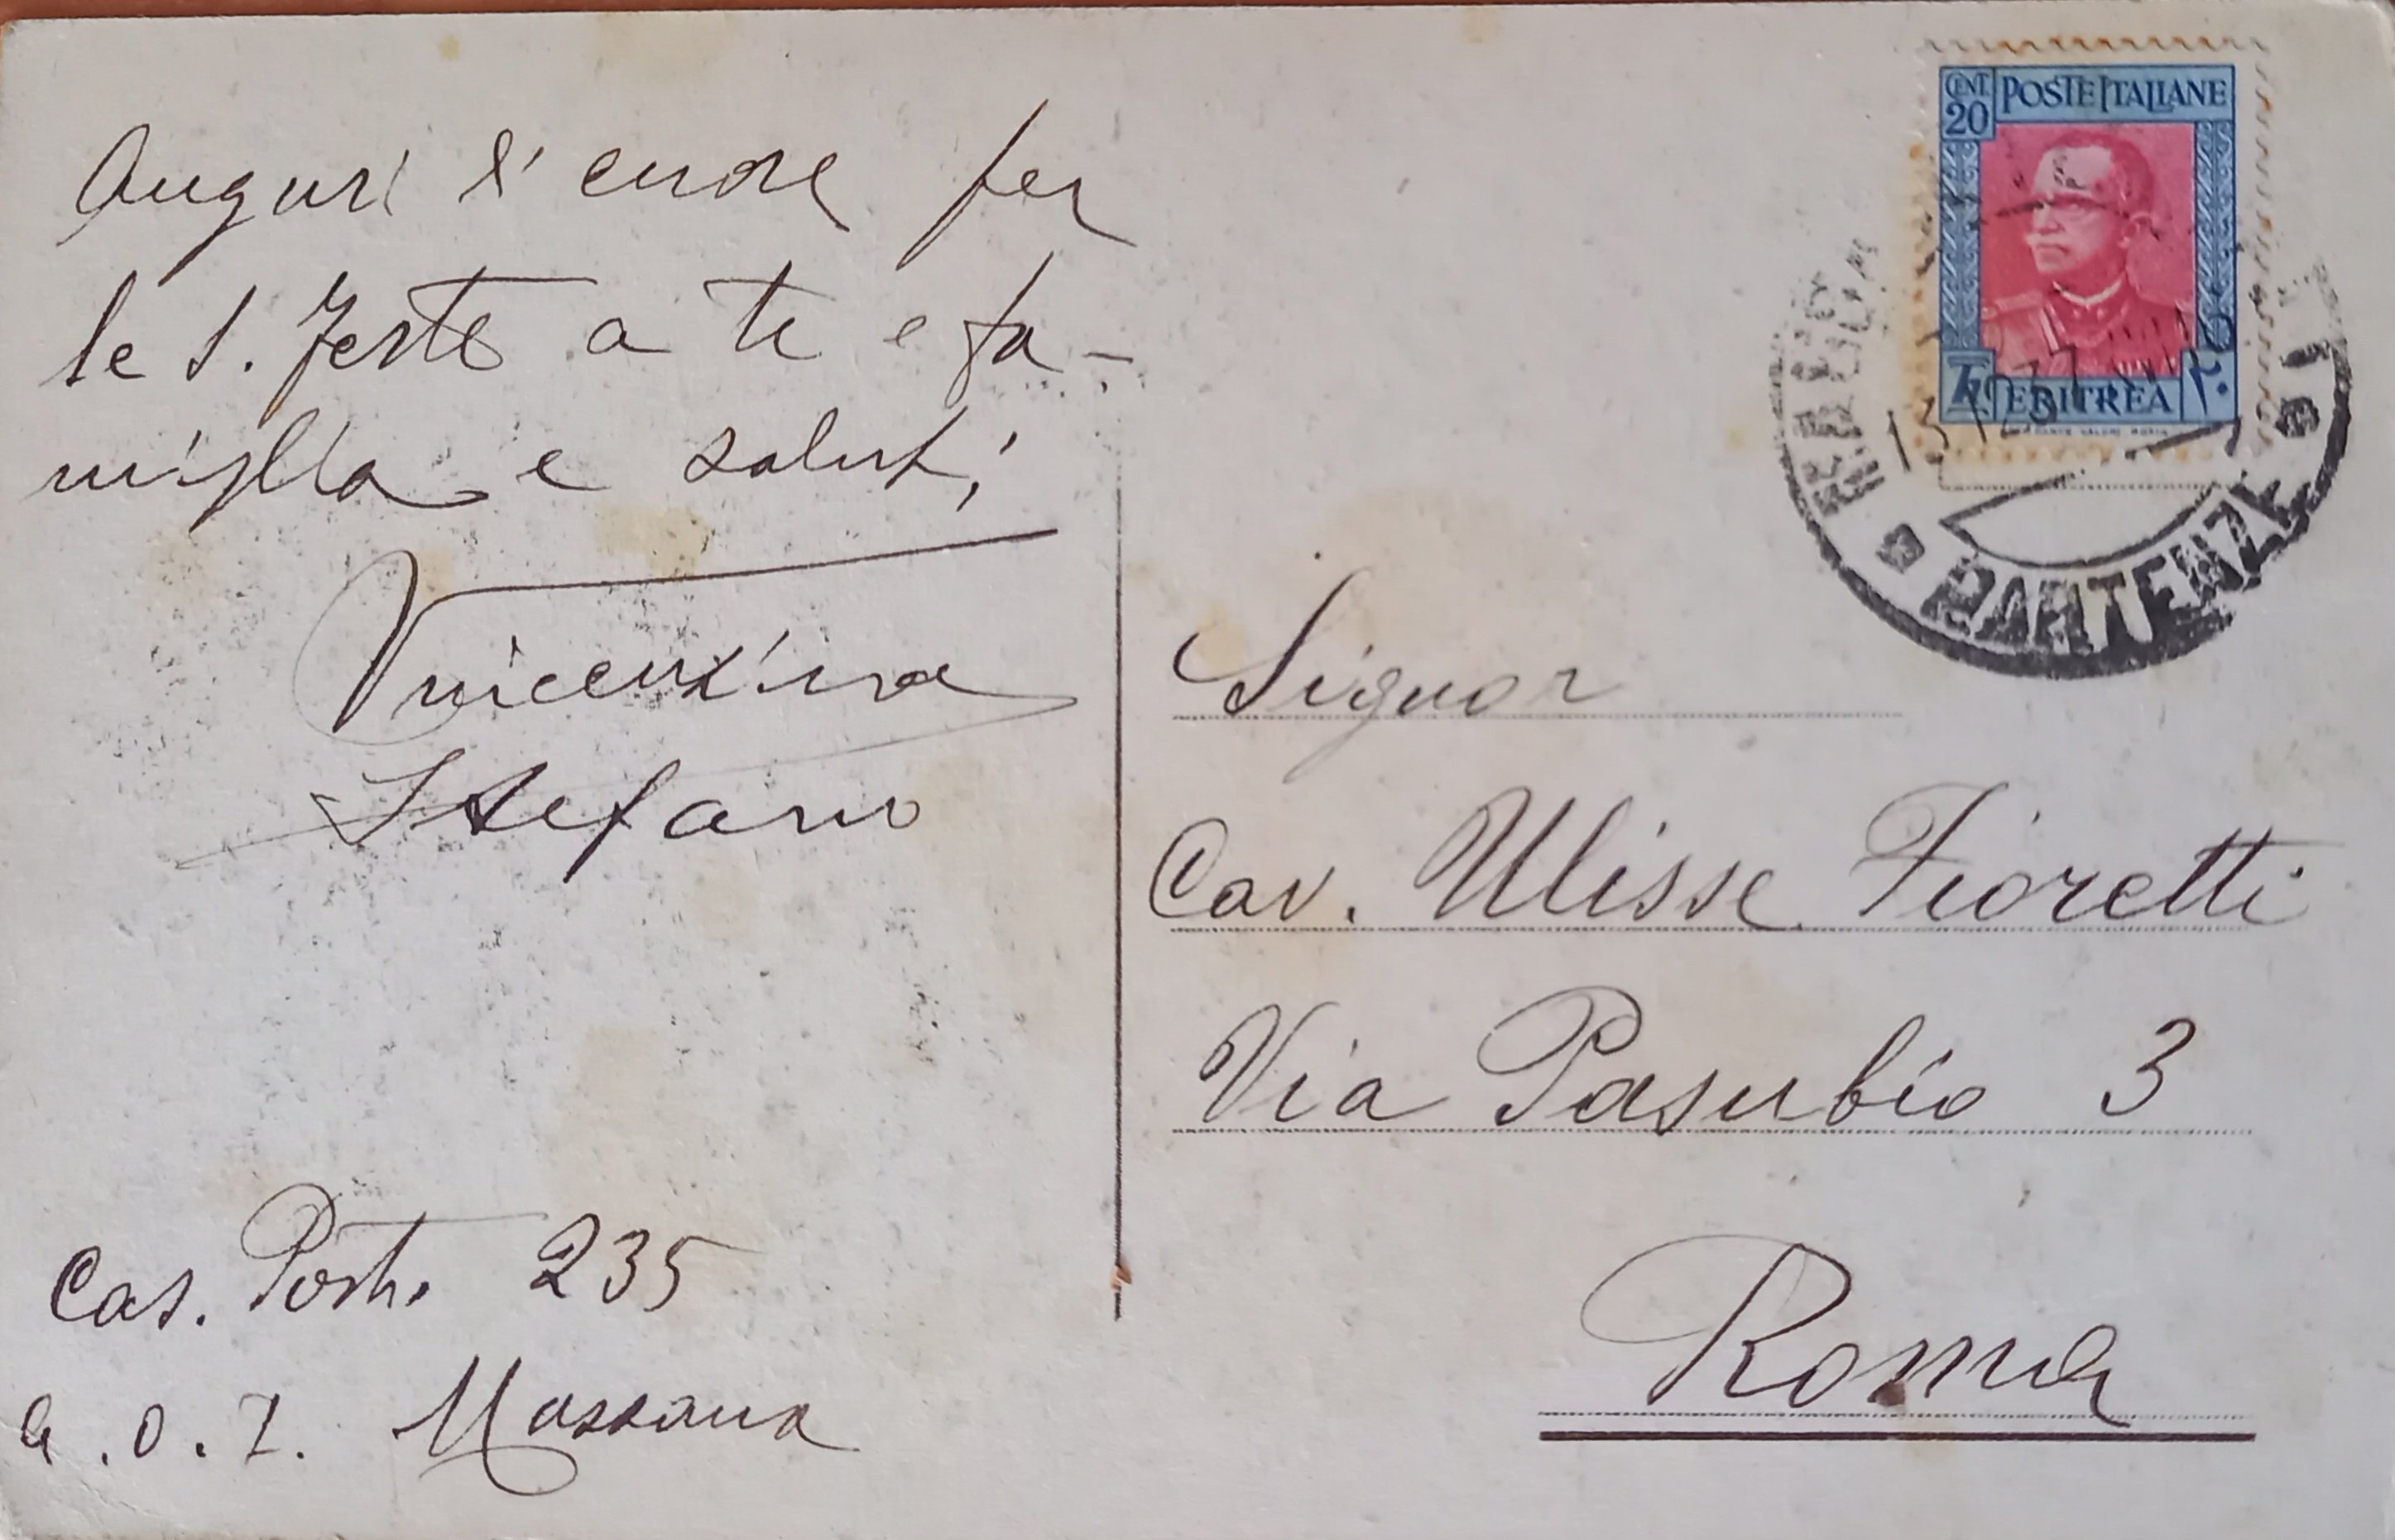 Auguri di cuore per
le S. Feste a te e fa-
miglia e saluti
Vincenzina
Stefano
Cas. Post. 235
A.O.I. Massaua
CENT. 20
POSTE ITALIANE
ERITREA
٢٠
13 12 37
PARTENZE
Signor
Cav. Ulisse Fioretti
Via Pasubio 3
Roma